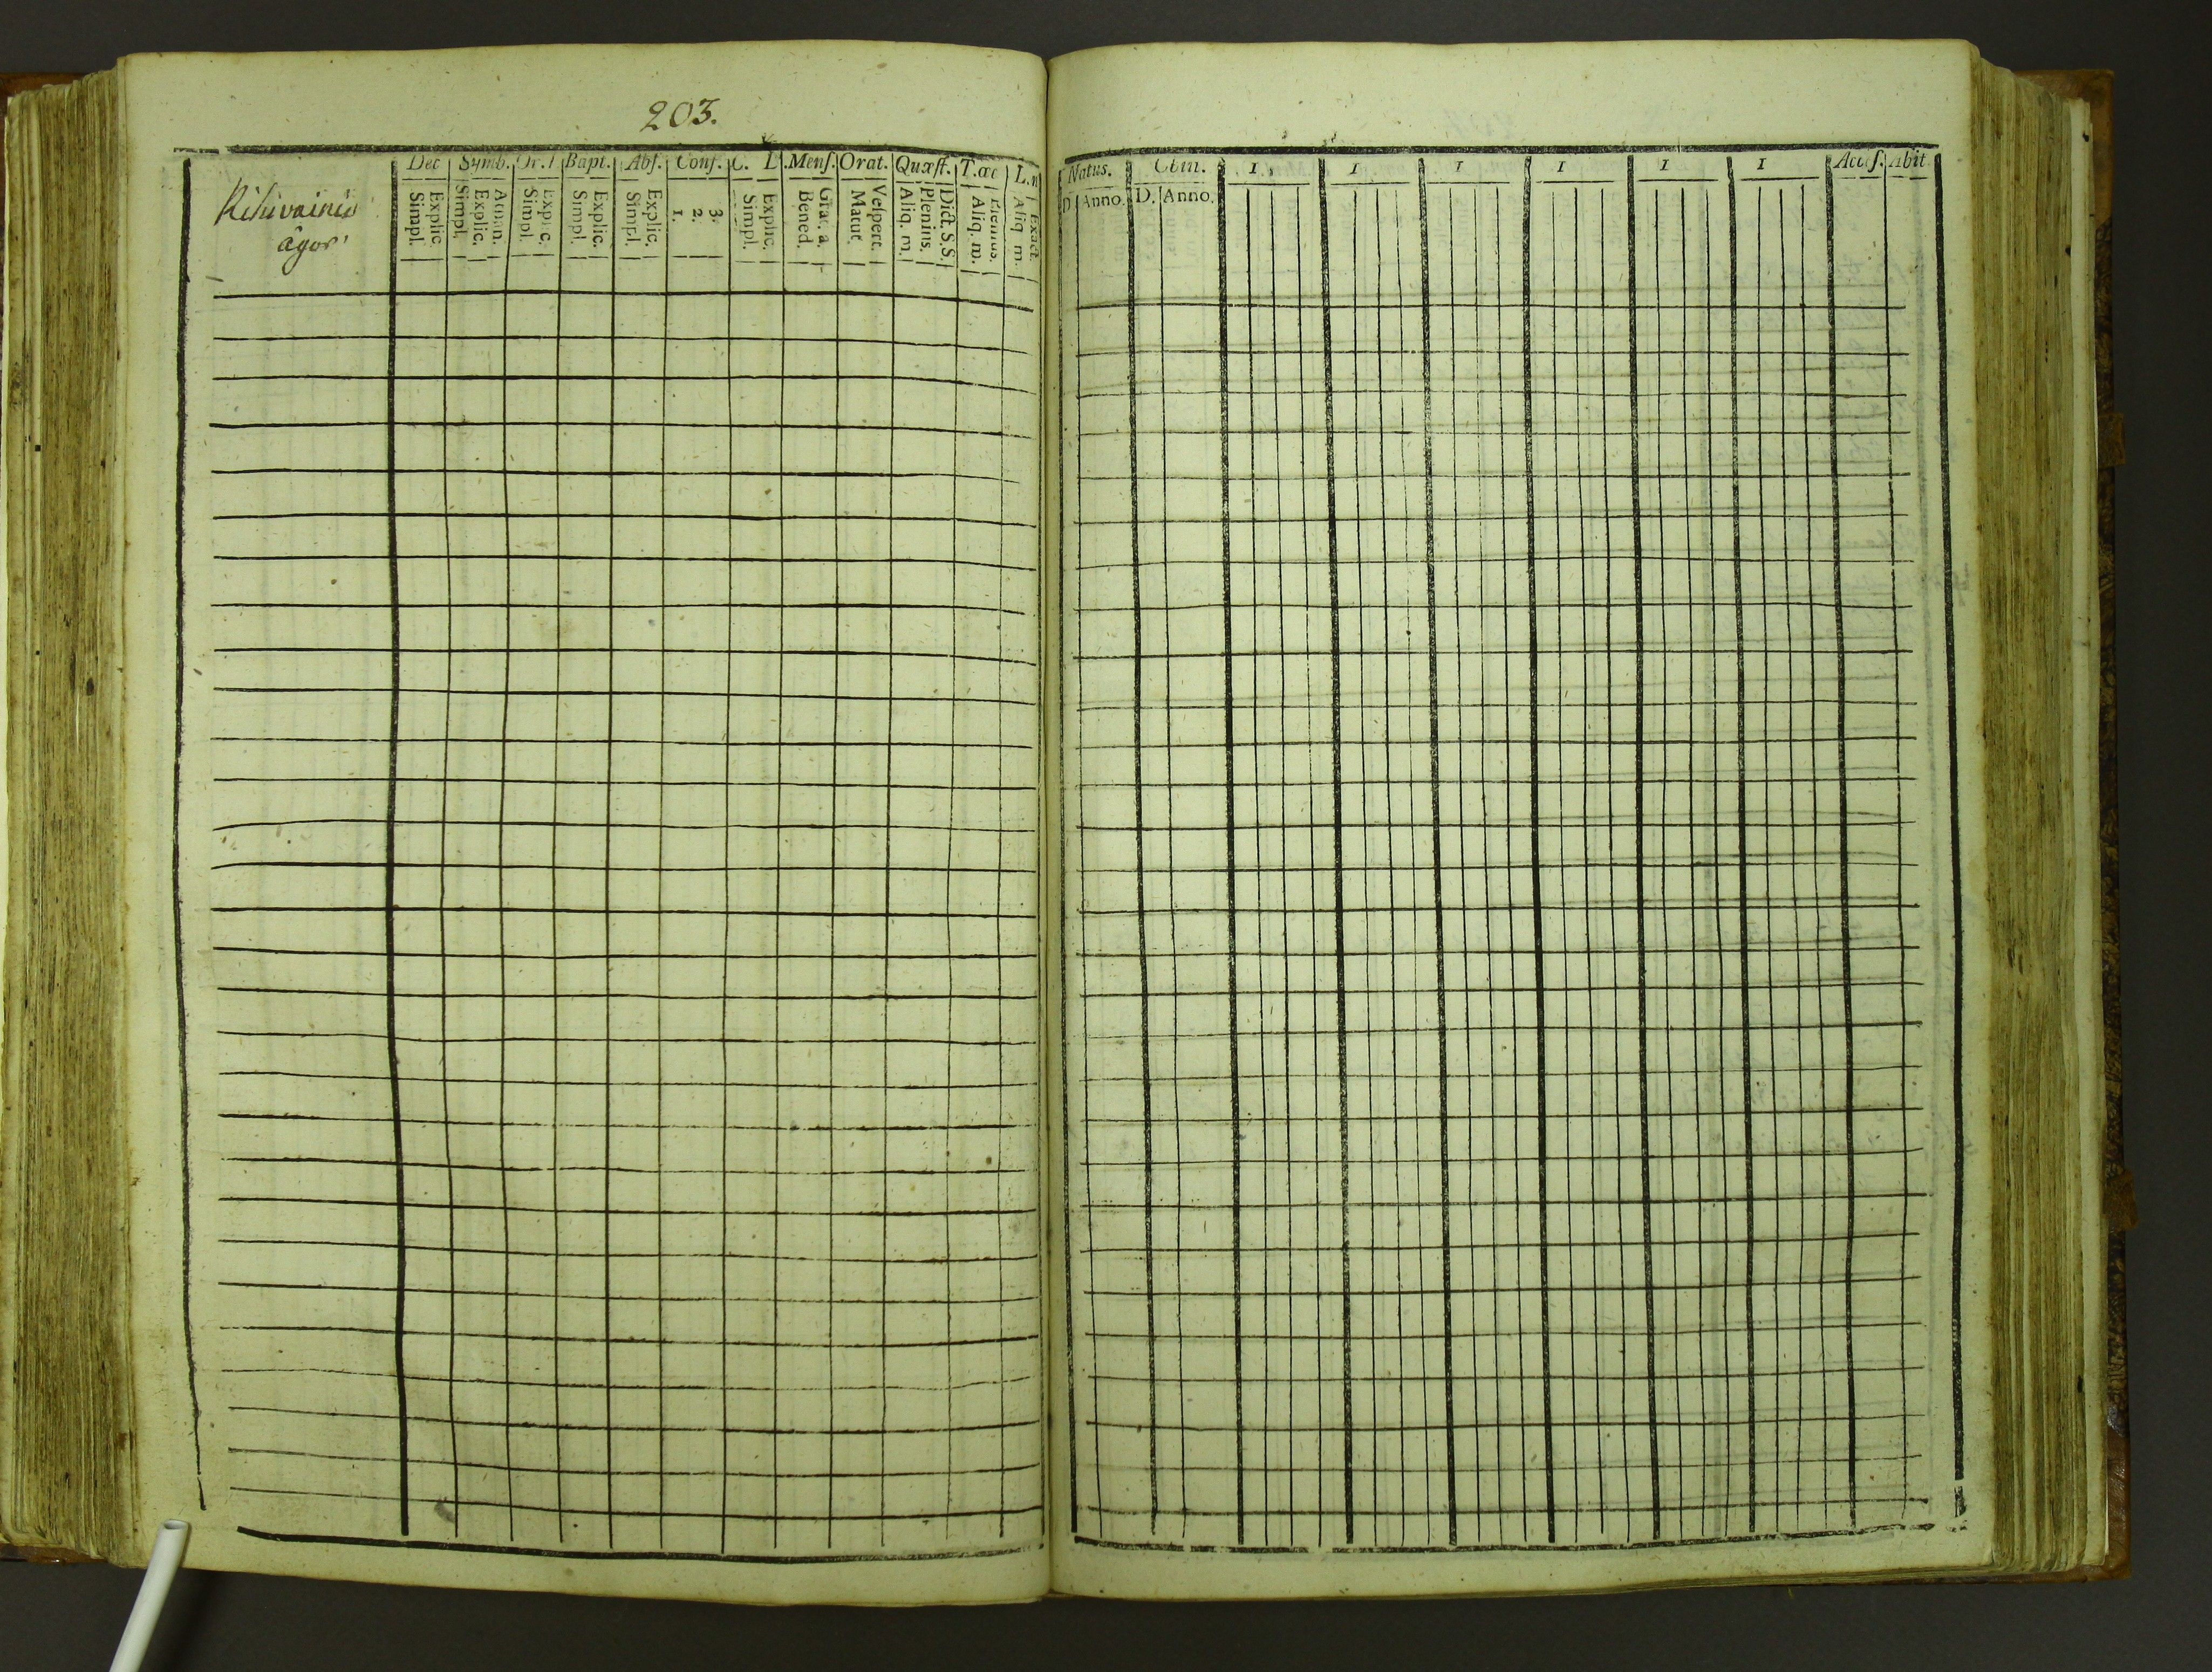 203.
Rihivainiô
ägor
Dec Symb. Or. Bapt. Abs. Conf. C. L. Mens. Orat. Quæst. T.æc L.n
Simpl. Explic. Simpl. Explic. Simpl. Explic. Simpl. Explic. Simpl. Explic. 1. 2. 3. Simpl. Explic. Bened. Matut. Vespert. Aliq. m. Plenius. Dict. S.S. Aliq. m. Plenius. Aliq. m. Exact.
Natus. Cõm. 1 1 1 1 1 1 Acces. Abit.
D. Anno. D. Anno.